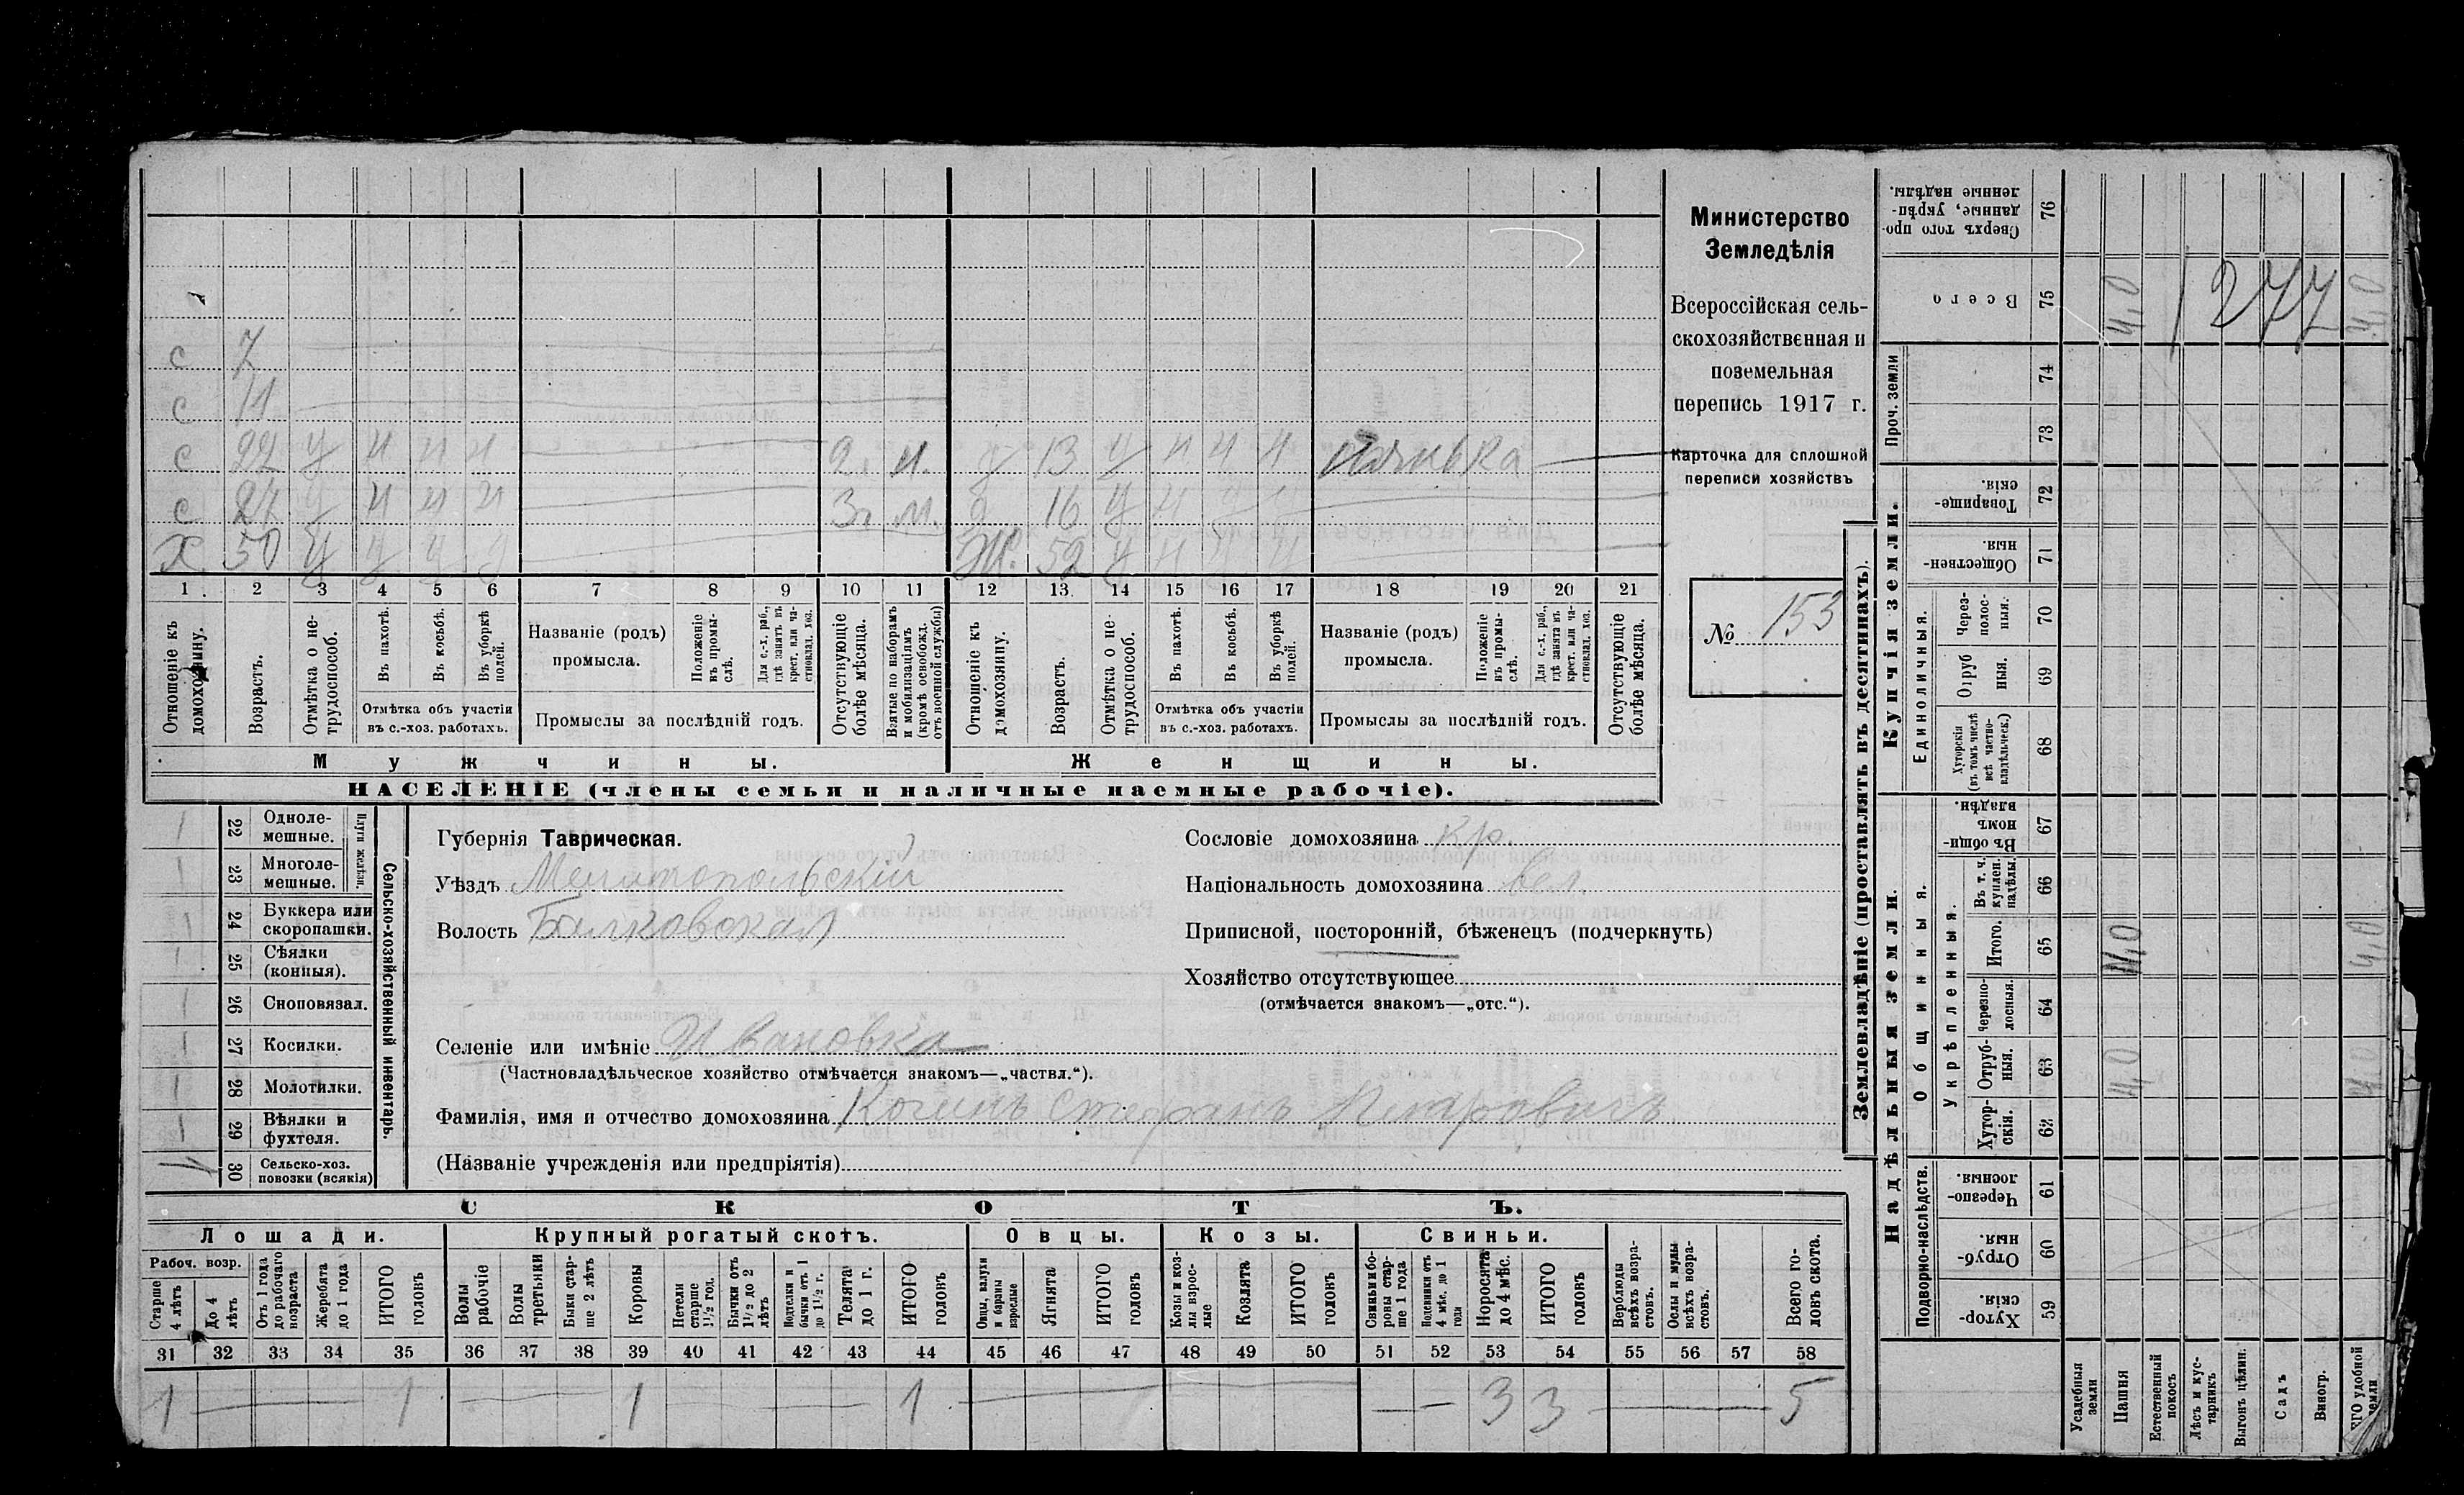 Министерство
Земледѣлія
Всероссійская сель-
скохозяйственная и
поземельная
перепись 1917 г.
Карточка для сплошной
переписи хозяйствъ
№ 153
с 7
с 11
с 22 у н н н 2 м. 13 у н ч н нянька
с 24 у н н н 3 г. м. д 16 у н
Х 50 у у у у Ж. 52 у н у у
1 2 3 4 5 6 7 8 9 10 11 12 13 14 15 16 17 18 19 20 21
Отношеніе къ домохозяину.
Возрастъ.
Отмѣтка о не-трудоспособ.
Въ пахотѣ.
Въ косьбѣ.
Въ уборкѣ полей.
Отмѣтка объ участіи
въ с.-хоз. работахъ.
Названіе (родъ)
промысла.
Положеніе въ промы-слѣ.
Для с.-х. раб., гдѣ занятъ въ крест. или ча-стновлад. хоз.
Промыслы за послѣдній годъ.
Отсутствующіе болѣе мѣсяца.
Взятые по наборамъ и мобилизаціямъ (кромѣ освобожд. отъ военной службы)
Отношеніе къ домохозяину.
Возрастъ.
Отмѣтка о не-трудоспособ.
Въ пахотѣ.
Въ косьбѣ.
Въ уборкѣ полей.
Отмѣтка объ участіи
въ с.-хоз. работахъ.
Названіе (родъ)
промысла.
Положеніе въ промы-слѣ.
Для с.-х. раб., гдѣ занята въ крест. или ча-стновлад. хоз.
Промыслы за послѣдній годъ.
Отсутствующіе болѣе мѣсяца.
Мужчины.
Женщины.
НАСЕЛЕНІЕ (члены семьи и наличные наемные рабочіе).
Сельско-хозяйственный инвентарь.
Плуги желѣзн.
22 Однолемешные.
23 Многолемешные.
24 Буккера или скоропашки.
25 Сѣялки (конныя).
26 Сноповязал.
27 Косилки.
28 Молотилки.
29 Вѣялки и фухтеля.
30 Сельско-хоз. повозки (всякія)
Губернія Таврическая.
Уѣздъ Мелитопольскій
Волость Балковская
Сословіе домохозяина кр.
Національность домохозяина вел.
Приписной, посторонній, бѣженецъ (подчеркнуть)
Хозяйство отсутствующее
(отмѣчается знакомъ—„отс.“).
Селеніе или имѣніе Ивановка
(Частновладѣльческое хозяйство отмѣчается знакомъ—„частвл.“).
Фамилія, имя и отчество домохозяина Стефанъ Петровичъ.
(Названіе учрежденія или предпріятія)
СКОТЪ.
Лошади. Крупный рогатый скотъ. Овцы. Козы. Свиньи.
Рабоч. возр.
Старше 4 лѣтъ
До 4 лѣтъ
Отъ 1 года до рабочаго возраста
Жеребята до 1 года
ИТОГО головъ
Волы рабочіе
Волы третьяки
Быки стар-ше 2 лѣтъ
Коровы
Нетели старше 1½ год.
Бычки отъ 1½ до 2 лѣтъ
Подтелки и бычки отъ 1 до 1½ г.
Телята до 1 г.
ИТОГО головъ
Овцы, валухи и бараны взрослые
Ягнята
ИТОГО головъ
Козы и коз-лы взрос-лые
Козлята
ИТОГО головъ
Свиньи и бо-ровы стар-ше 1 года
Подсвинки отъ 4 мѣс. до 1 года
Поросята до 4 мѣс.
ИТОГО головъ
Верблюды всѣхъ возра-стовъ.
Ослы и мулы всѣхъ возра-стовъ.
Всего го-ловъ скота.
31 32 33 34 35 36 37 38 39 40 41 42 43 44 45 46 47 48 49 50 51 52 53 54 55 56 57 58
1 — 1 — 1 — 1 — — — 3 3 — 5
Землевладѣніе (проставлять въ десятинахъ).
Надѣльныя земли.
Купчія земли.
Проч. земли
Подворно-наслѣдств.
Общинныя.
Укрѣпленныя.
Единоличныя.
Хутор-скія. 59
Отруб-ныя. 60
Черезпо-лосныя 61
Хутор-скія. 62
Отруб-ныя. 63
Черезпо-лосныя. 64
Итого. 65
Въ т. ч. куплен. надѣлы. 66
Въ общин-номъ владѣн. 67
Хуторскія (въ томъ числѣ всѣ частно-владѣльческ.) 68
Отруб ныя. 69
Через-полос-ныя. 70
Обществен-ныя 71
Товарище-скія. 72
73
74
Всего 75
Сверхъ того про-данные, укрѣп-ленные надѣлы. 76
Усадебныя земли
Пашня 4,0 4,0
Естественный покосъ
Лѣсъ и кус-тарникъ
Выгонъ цѣлин.
Садъ
Виногр.
удобной земли 4,0 4,0 4,0
1277